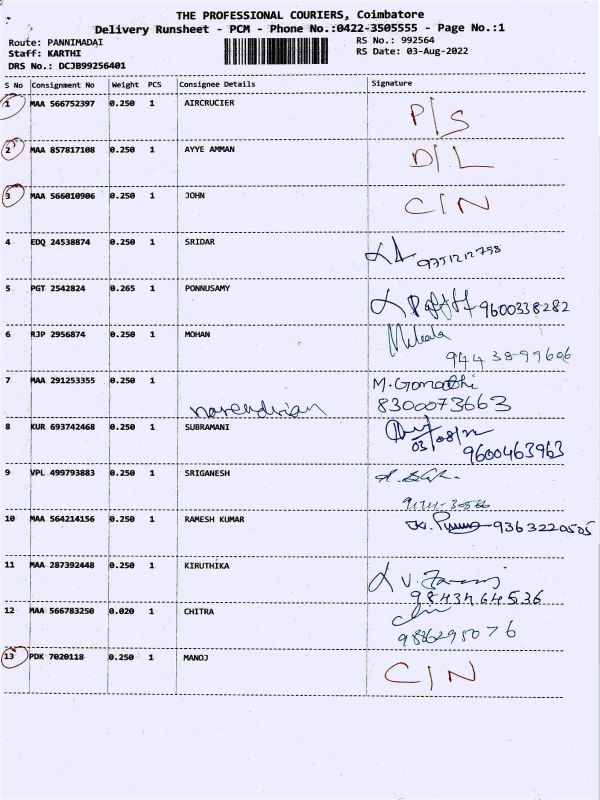 THE PROFESSIONAL COURIERS, Coimbatore
Delivery Runsheet - PCM - Phone No.:0422-3505555 - Page No.:1
Route: PANNIMADAI RS No.: 992564
Staff: KARTHI RS Date: 03-Aug-2022
DRS No.: DCJB99256401
S No Consignment No Weight PCS Consignee Details Signature
1 MAA 566752397 0.250 1 AIRCRUCIER P/S
2 MAA 857817108 0.250 1 AYYE AMMAN D/L
3 MAA 566010906 0.250 1 JOHN C/N
4 EDQ 24538874 0.250 1 SRIDAR
9751212798
5 PGT 2542824 0.265 1 PONNUSAMY
9600338282
6 RJP 2956874 0.250 1 MOHAN
94438-99606
7 MAA 291253355 0.250 1 M. Gomathi
narendiran 8300073663
8 KUR 693742468 0.250 1 SUBRAMANI
03/08/22
9600463963
9 VPL 499793883 0.250 1 SRIGANESH
10 MAA 564214156 0.250 1 RAMESH KUMAR 9363220505
11 MAA 287392448 0.250 1 KIRUTHIKA
9843464536
12 MAA 566783250 0.020 1 CHITRA
9886295076
13 PDK 7020118 0.250 1 MANOJ C/N